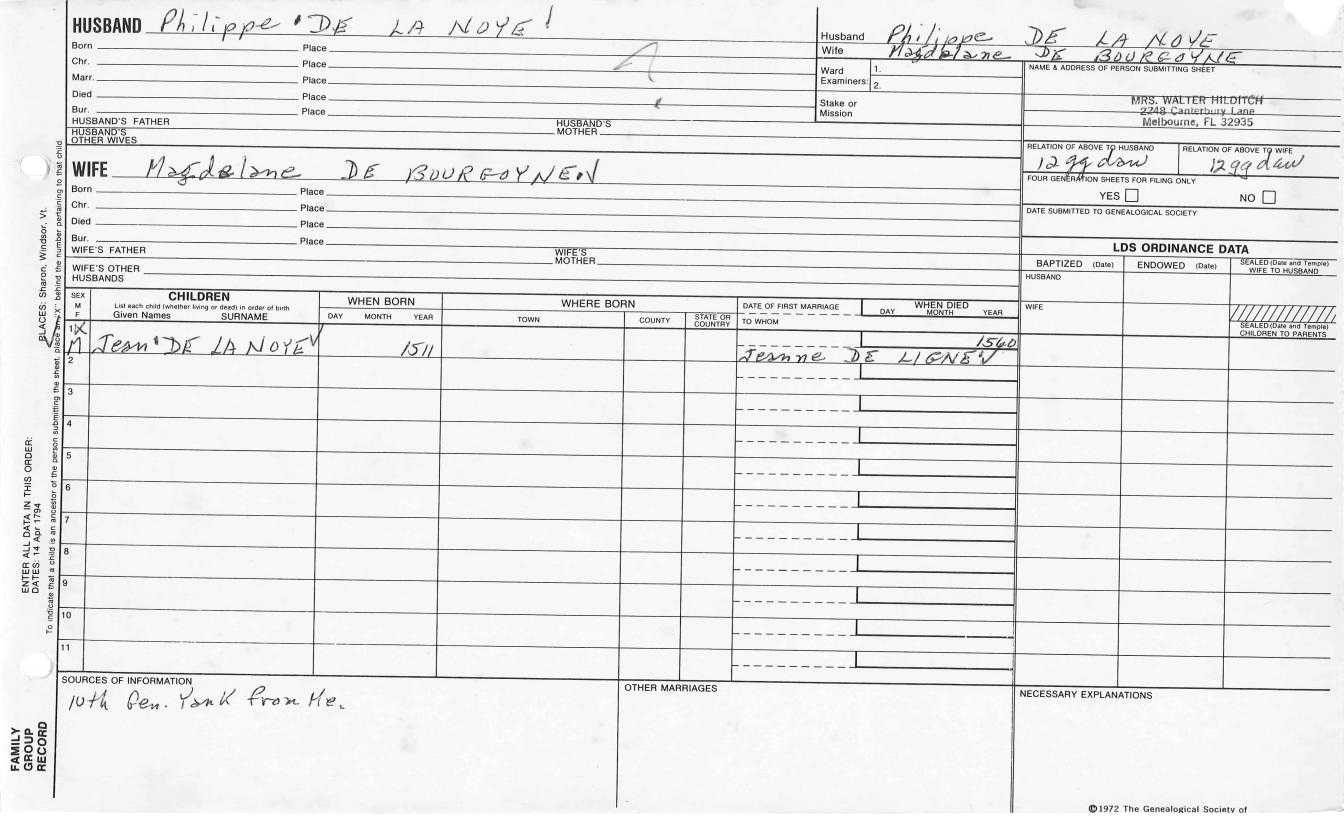 HUSBAND Philippe DE LA NOYE
Born Place
Chr. Place
Marr. Place
Died Place
Bur. Place
HUSBAND'S FATHER HUSBAND'S MOTHER
HUSBAND'S OTHER WIVES
Husband Philippe DE LA NOYE
Wife Magdalane DE BOURGOYNE
Ward Examiners: 1.
2.
Stake or Mission
NAME & ADDRESS OF PERSON SUBMITTING SHEET
MRS. WALTER HILDITCH
2248 Canterbury Lane
Melbourne, FL 32935
RELATION OF ABOVE TO HUSBAND RELATION OF ABOVE TO WIFE
12 gg dau 12 gg dau
FOUR GENERATION SHEETS FOR FILING ONLY
YES NO
DATE SUBMITTED TO GENEALOGICAL SOCIETY
WIFE Magdalane DE BOURGOYNE
Born Place
Chr. Place
Died Place
Bur. Place
WIFE'S FATHER WIFE'S MOTHER
WIFE'S OTHER HUSBANDS
LDS ORDINANCE DATA
BAPTIZED (Date) ENDOWED (Date) SEALED (Date and Temple) WIFE TO HUSBAND
HUSBAND
WIFE
SEALED (Date and Temple) CHILDREN TO PARENTS
SEX M F
CHILDREN
List each child (whether living or dead) in order of birth
Given Names SURNAME
WHEN BORN
DAY MONTH YEAR
WHERE BORN
TOWN COUNTY STATE OR COUNTRY
DATE OF FIRST MARRIAGE
TO WHOM
WHEN DIED
DAY MONTH YEAR
1 X
M Jean DE LA NOYE 1511 1560
Jeanne DE LIGNE
2
3
4
5
6
7
8
9
10
11
SOURCES OF INFORMATION
10th Gen. Yank from Me.
OTHER MARRIAGES
NECESSARY EXPLANATIONS
©1972 The Genealogical Society of
FAMILY GROUP RECORD
ENTER ALL DATA IN THIS ORDER:
DATES: 14 Apr 1794
PLACES: Sharon, Windsor, Vt.
To indicate that a child is an ancestor of the person submitting the sheet, place an "X" behind the number pertaining to that child.